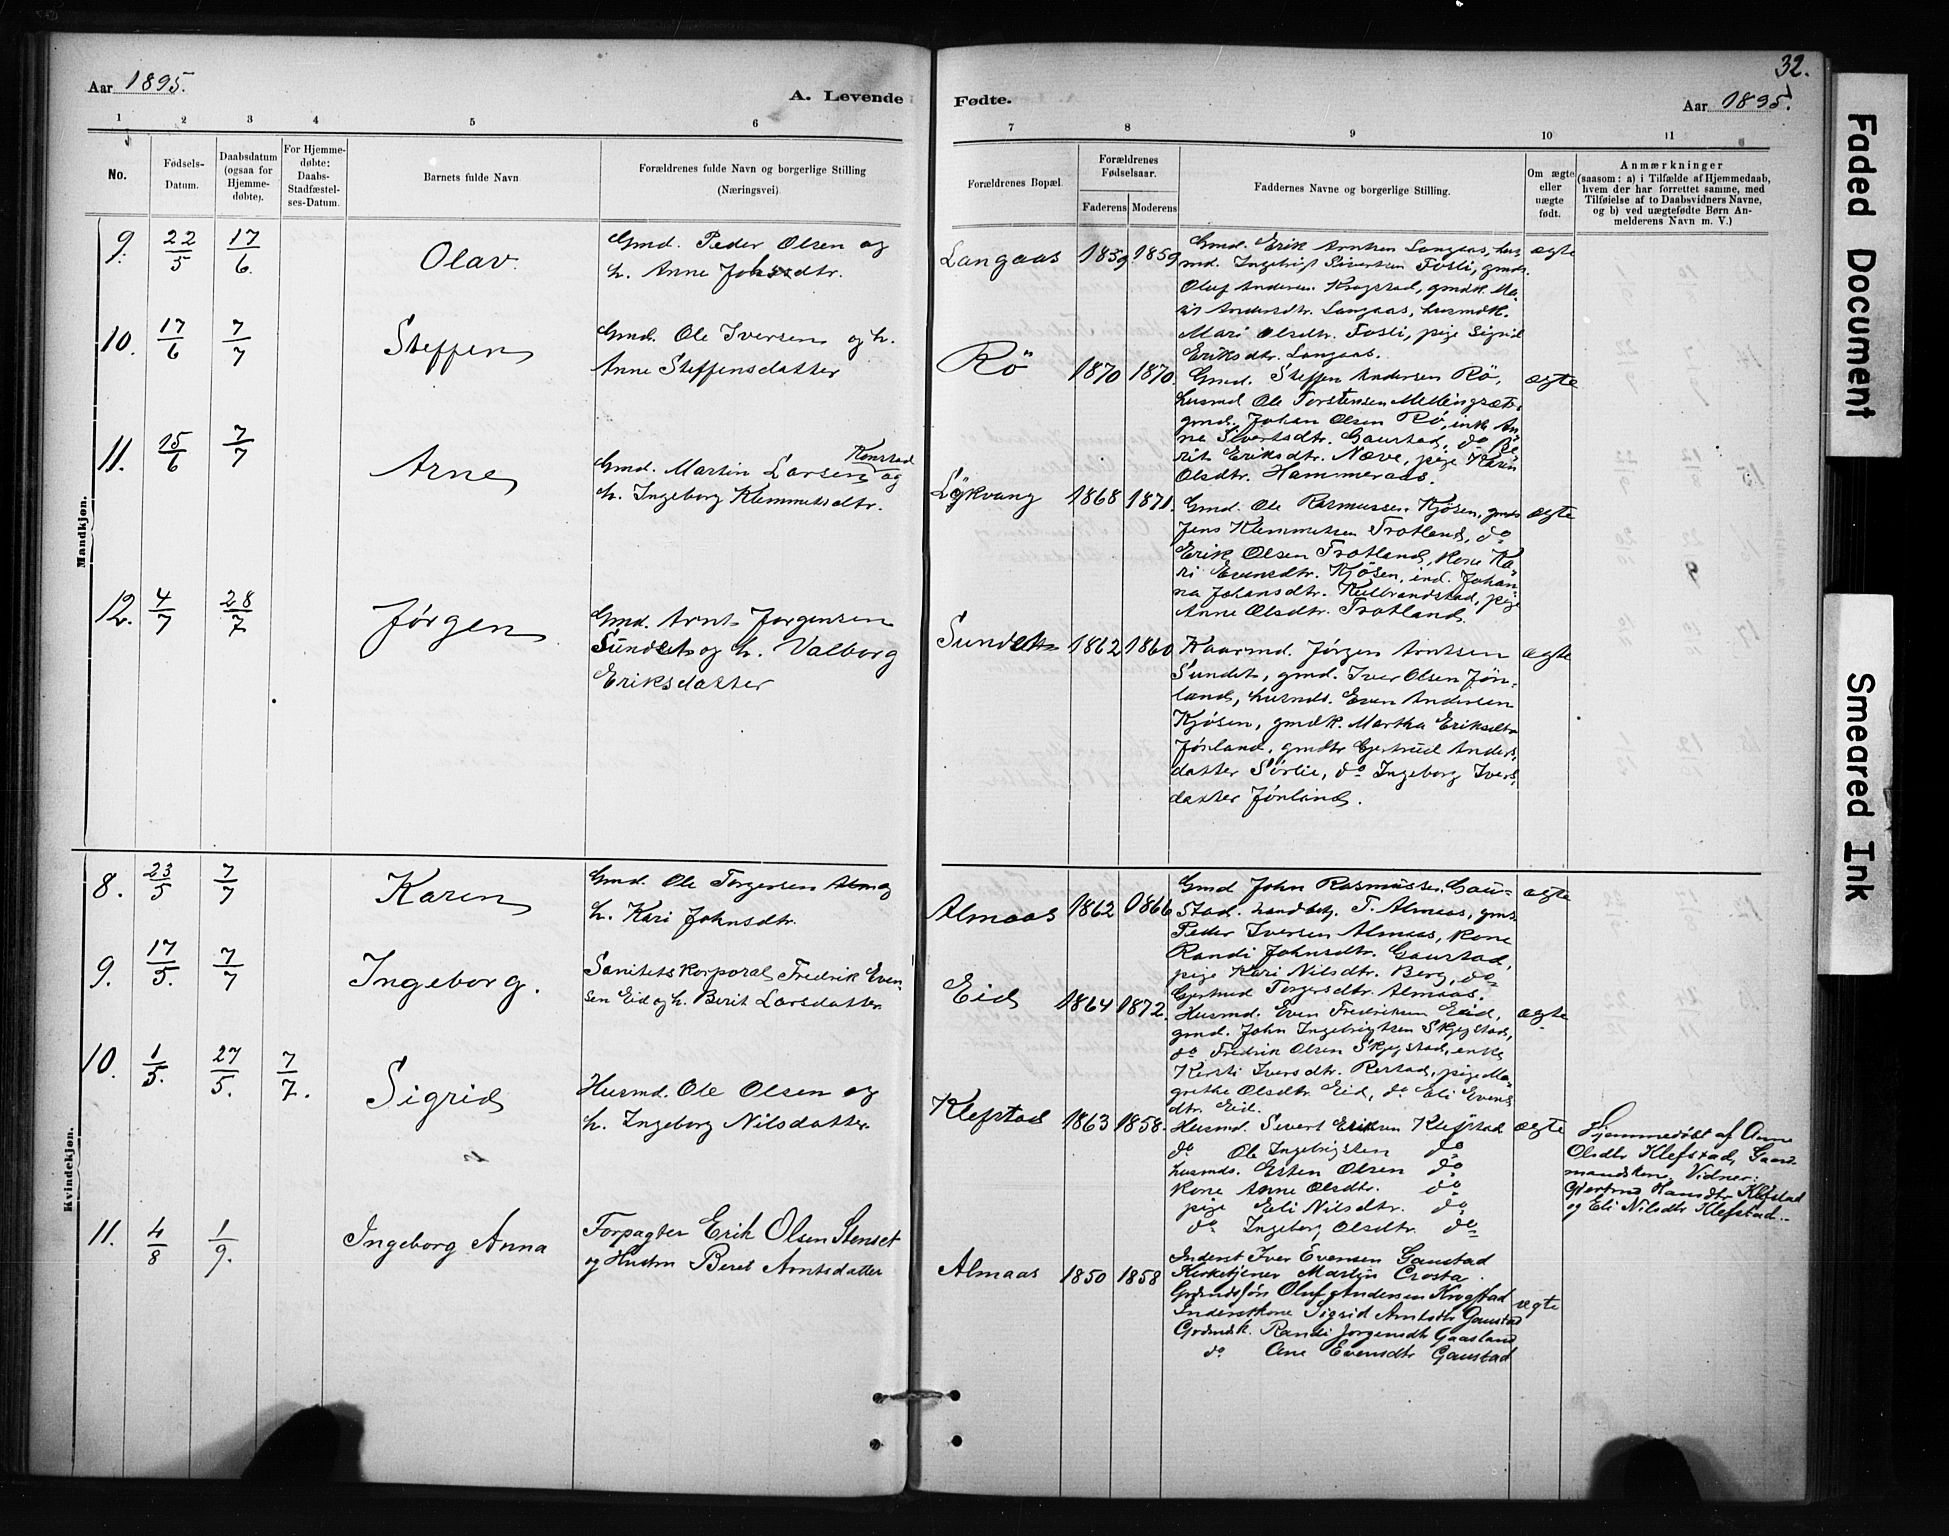 32.
Aar 1895.
A. Levende
Fødte.
Aar 1895.
1 2 3 4 5 6 7 8 9 10 11
No.
Fødsels-
Datum.
Daabsdatum
(ogsaa for
Hjemme-
døbte).
For Hjemme-
døbte:
Daabs-
Stadfæstel-
ses-Datum.
Barnets fulde Navn
Forældrenes fulde Navn og borgerlige Stilling
(Næringsvei).
Forældrenes Bopæl.
Forældrenes
Fødselsaar.
Faderens Moderens
Faddernes Navne og borgerlige Stilling.
Om ægte
eller
uægte
født.
Anmærkninger
(saasom: a) i Tilfælde af Hjemmedaab,
hvem der har forrettet samme, med
Tilføielse af to Daabsvidners Navne,
og b) ved uægtefødte Børn An-
melderens Navn m. V.)
Mandkjøn.
9. 22/5 17/6. Olav.
Gmd. Peder Olsen og
h. Anne Johnsdtr.
Langaas 1859 1859
Gmd. Erik Arntsen Langaas, hus-
md. Ingebrigt Sivertsen Fosli, gmds.
Oluf Andersen Krogstad, gmdk. Ma-
rit Andersdtr. Langaas, husmdk.
Mari Olsdtr. Fosli, pige Sigrid
Eriksdtr. Langaas.
ægte
10. 17/6 7/7 Steffen
Gmd. Ole Iversen og h.
Anne Steffensdatter
Rö 1870 1870.
Gmd. Steffen Andersen Rö,
husmd Ole Torstensen Mellingsæt.
gmd. Johan Olsen Rö, enk. An-
ne Sivertsdtr. Gaustad, do Be-
rit Eriksdtr. Næve, pige Karen
Olsdtr. Hammeraas.
ægte
11. 15/6 7/7 Arne
Gmd. Martin Larsen Konstad og
h. Ingeborg Klemmetsdtr.
Lökvang 1868 1871.
Gmd. Ole Rasmussen Kjøsen, gmds
Jens Klemmetsen Trotland, do
Erik Olsen Trotland, kone Ka-
ri Evensdtr. Kjøsen, ind. Johan-
na Johansdtr. Kulbrandstad, pige
Anne Olsdtr. Trotland.
ægte
12. 4/7 28/7 Jørgen
Gmd. Arnt Jørgensen
Sundet og h. Valborg
Eriksdatter
Sundet 1862 1860
Kaarmd. Jørgen Arntsen
Sundet, gmd. Iver Olsen Jøn-
land, husmds. Even Andersen
Kjøsen, gmdk. Martha Eriksdtr
Jønland, gmdtr Gjertrud Anders-
datter Sørlie, do Ingeborg Ivers-
datter Jønland.
ægte
Kvindekjøn.
8. 23/5 7/7 Karen
Gmd. Ole Torgersen Almog
h. Kari Johnsdtr.
Almaas 1862 1866
Gmd John Rasmussen Gau-
stad. Landbetj. T. Almaas, gmd.
Peder Iversen Almaas, kone
Randi Johnsdtr. Gaustad,
pige Kari Nilsdtr. Berg, do
Gjertrud Torgersdtr. Almaas.
ægte
9. 17/5. 7/7 Ingeborg.
Sanitetskorporal Fredrik Even-
sen Eid og h. Berit Larsdatter
Eid 1864 1872.
Husmd. Even Fredriksen Eid,
gmd. John Ingebrigtsen Skjegstad,
do Fredrik Olsen Skjegstad, enke
Kirsti Iversdtr. Restad, pige Ma-
grethe Olsdtr Eid, do Eli Evens-
dtr. Eid.
ægte
10. 1/5. 27/5. 7/7. Sigrid
Husmd. Ole Olsen og
h. Ingeborg Nilsdatter
Klefstad 1863 1858.
Husmd. Sivert Eriksen Klefstad
do Ole Ingebrigtsen do
husmds. Esten Olsen do
kone Anne Olsdtr. do
pige Eli Nilsdtr. do
do Ingeborg Olsdtr do
ægte
Hjemmedöbt af Anne
Olsdtr Klefstad, Gaard-
mandskone, Vidner:
Gjertrud Hansdtr Klefstad
og Eli Nilsdtr Klefstad.
11. 4/8 1/9. Ingeborg Anna
Forpagter Erik Olsen Stenset
og Hustru Beret Arntsdatter
Almaas 1850 1858
Inderst Iver Evensen Gaustad
Kirketjener Martin Crosta
Grdmdssøn Oluf Andersen Krogstad
Inderstkone Sigrid Arntsdtr Gaustad
Grdmdk. Randi Jørgensdtr Gaasland
do Ane Evensdtr Gaustad
ægte
Faded Document
Smeared Ink